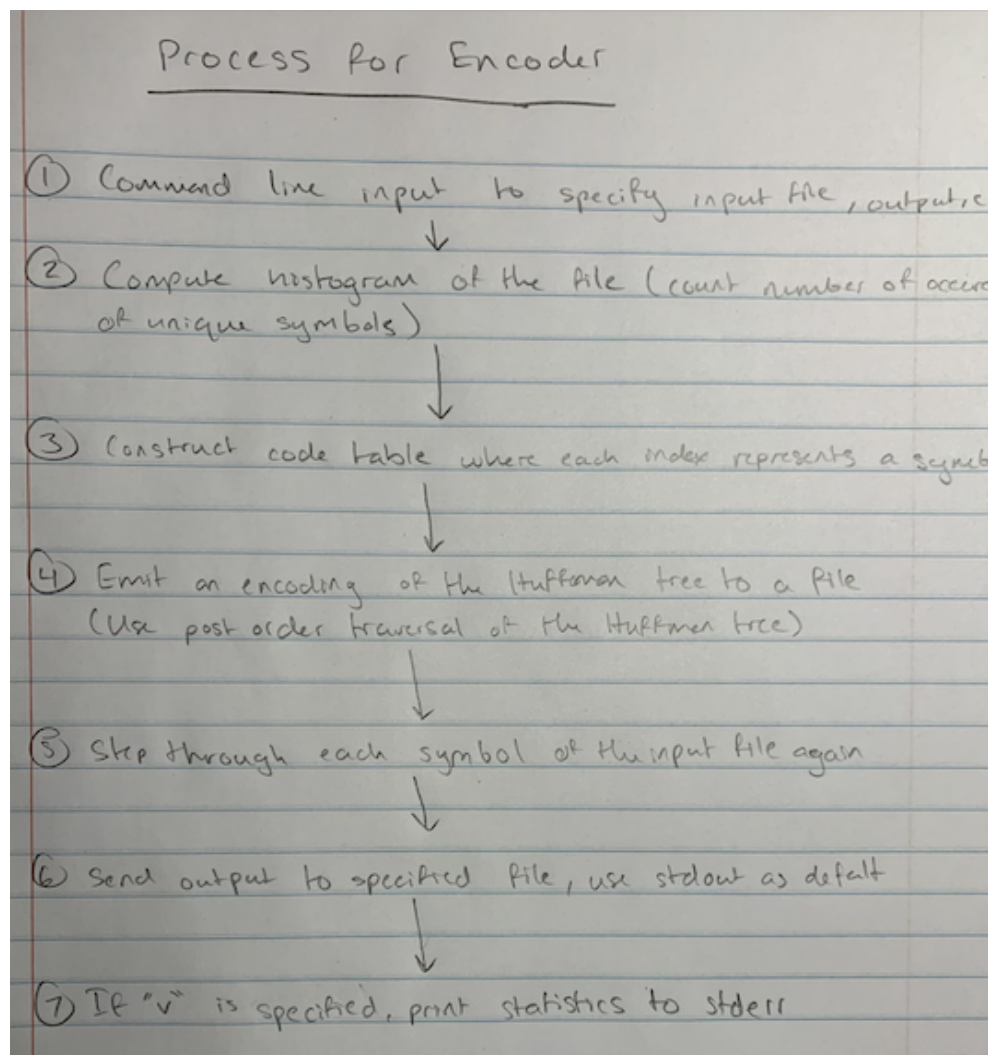 Process for Encoder
① Command line input to specify input file, output, e
↓
② Compute histogram of the file (count number of occure
of unique symbols)
↓
③ Construct code table where each index represents a symb
↓
④ Emit an encoding of the Huffman tree to a file
(Use post order traversal of the Huffman tree)
↓
⑤ Step through each symbol of the input file again
↓
⑥ Send output to specified file, use stdout as defalt
↓
⑦ If "v" is specified, print statistics to stderr